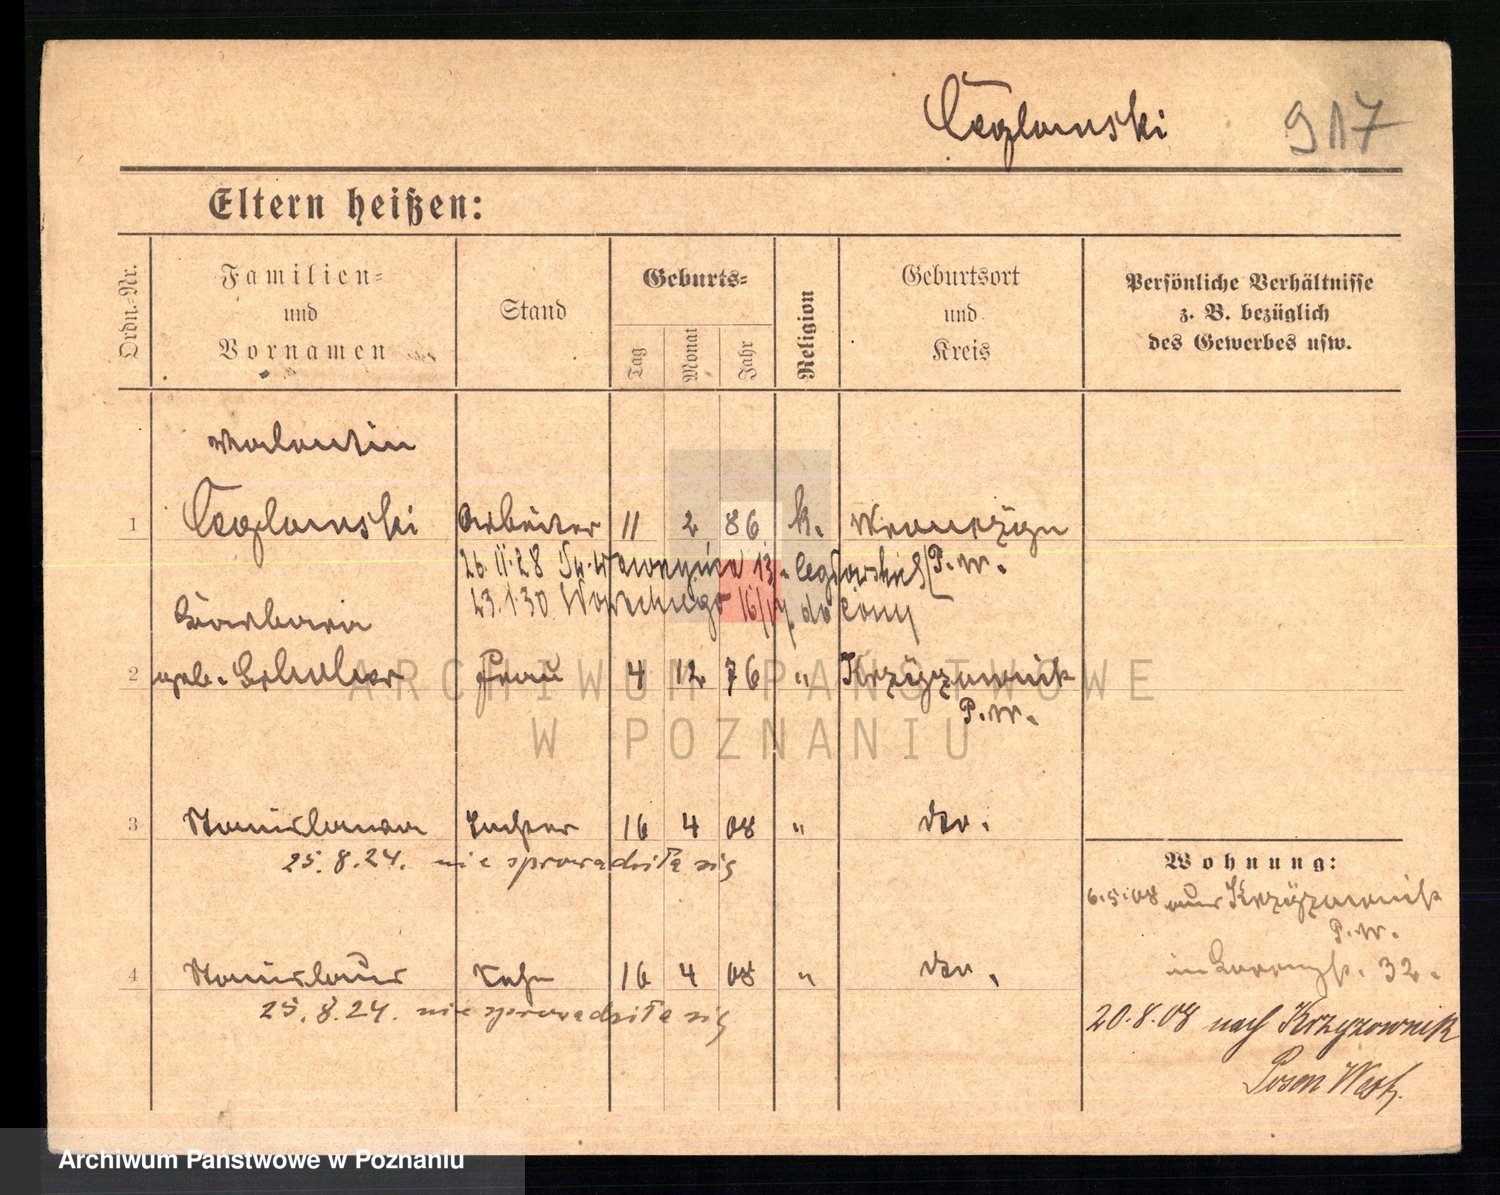 Ceglowski 917
Eltern heißen:
Ordn.-Nr.
Familien-
und
Vornamen
Stand
Geburts-
Tag
Monat
Jahr
Religion
Geburtsort
und
Kreis
Persönliche Verhältnisse
z. B. bezüglich
des Gewerbes usw.
Valentin
1 Ceglowski Arbeiter 11 2 86 k.
26. 11. 28 13 P. W.
23. 1. 30 16/17 do żony
Barbara
2 geb. Frau 4 12 76 " Krzyżownik
P. W.
3 Stanislawa Tochter 16 4 08 " do.
25. 8. 24. nie sprowadziła się
4 Stanislaus Sohn 16 4 08 " do.
25. 8. 24. nie sprowadziła się
Wohnung:
6. 5. 08 aus Krzyżownik
P. W.
in 32.
20. 8. 08 nach Krzyzownik
Posen West.
ARCHIWUM PAŃSTWOWE
W POZNANIU
Archiwum Państwowe w Poznaniu